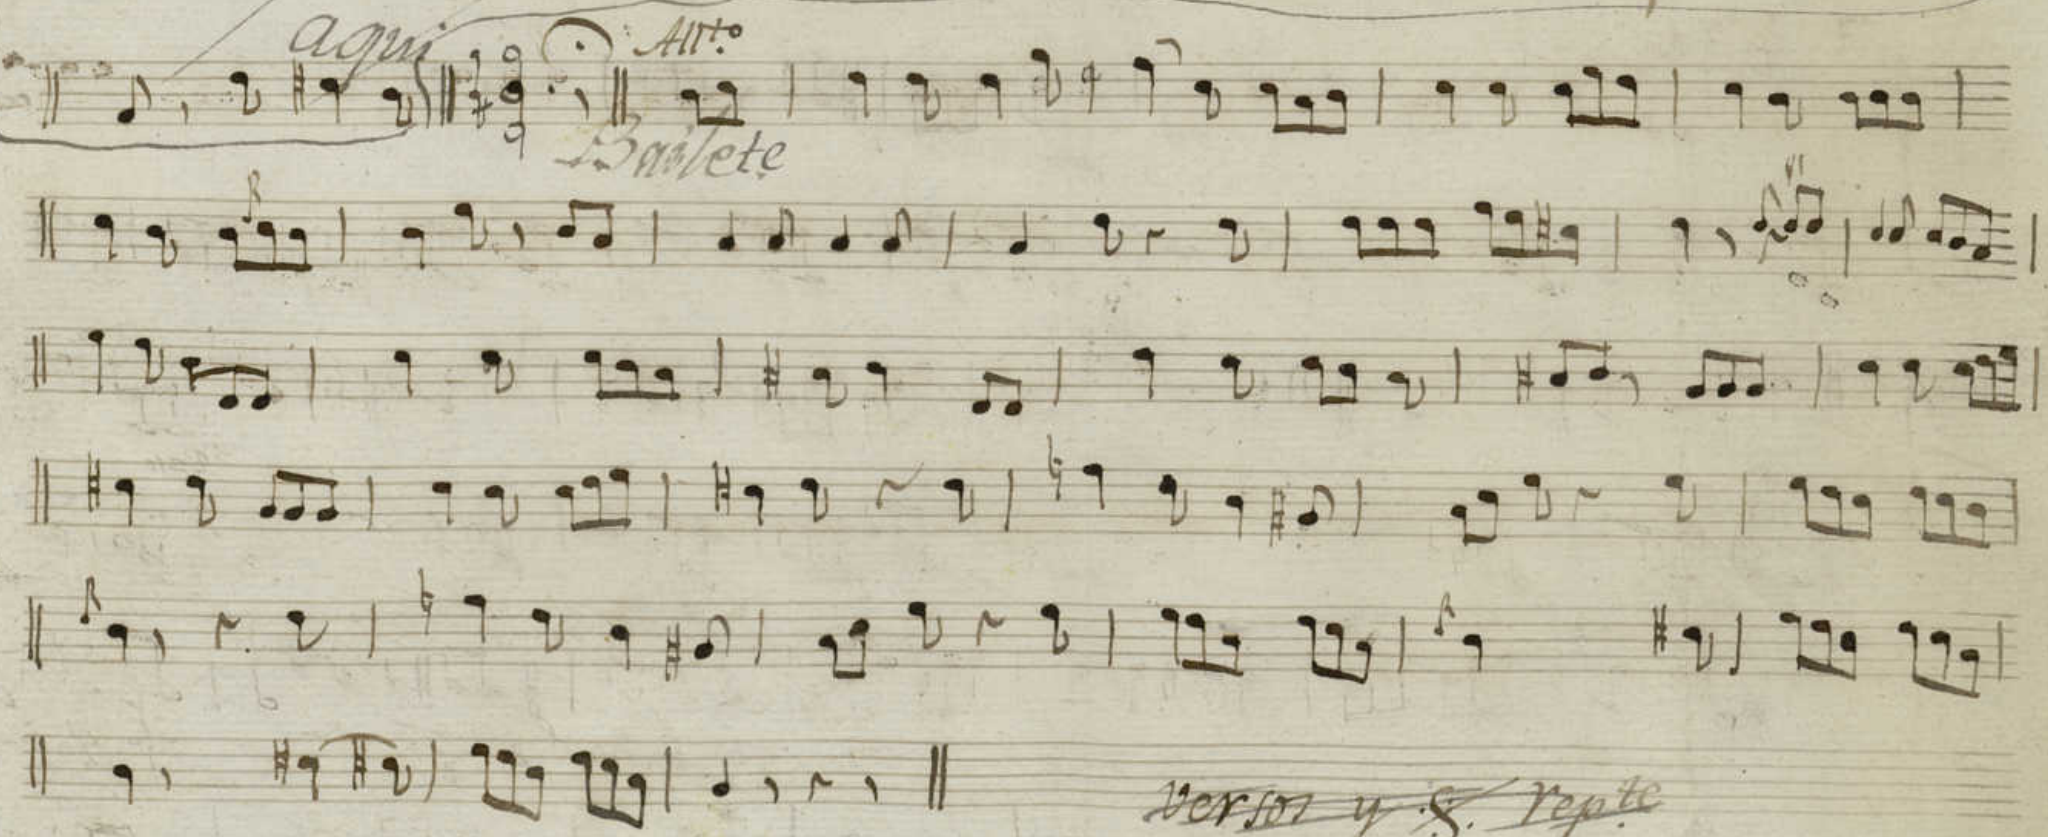 aqui
All.to
Bailete
versos y S. rep.te